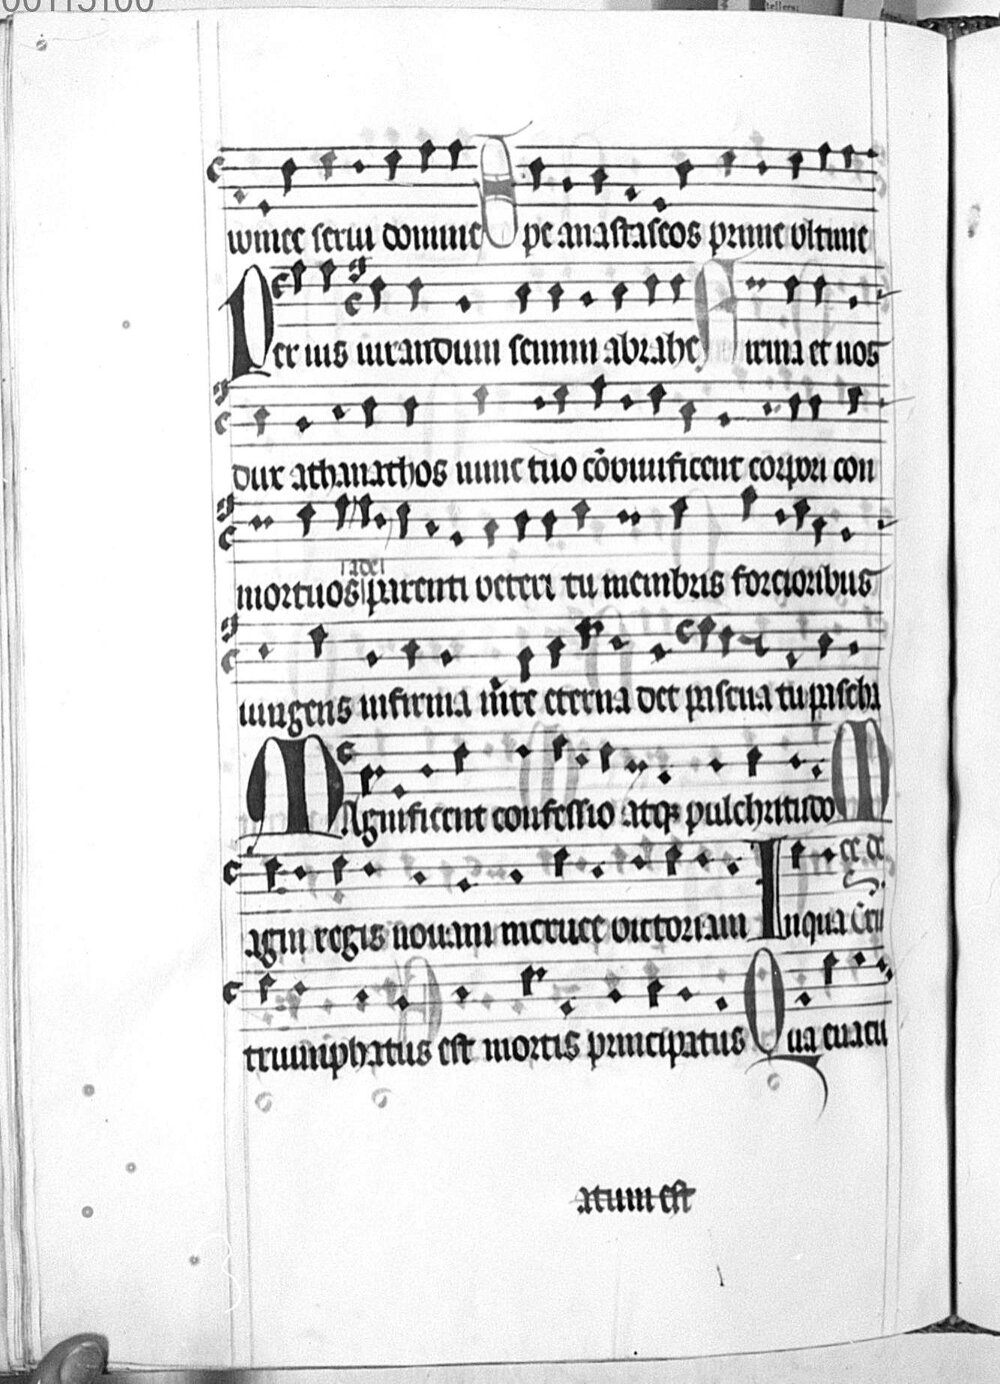 serui domine Ope anastaseos prime ultime
Per ius iurandum semini abrahe Firma et nos
dux athanathos nunc tuo cōuiuificent corpori con
mortuos parenti ueteri tu membris forcioribus
iungens infirma uite eterna det pascua tu pascha
MAgnificent confessio atq; pulchritudo M
agni regis nouam metuee uictoriam In qua
triumphatus est mortis principatus Qua euacu
atum est